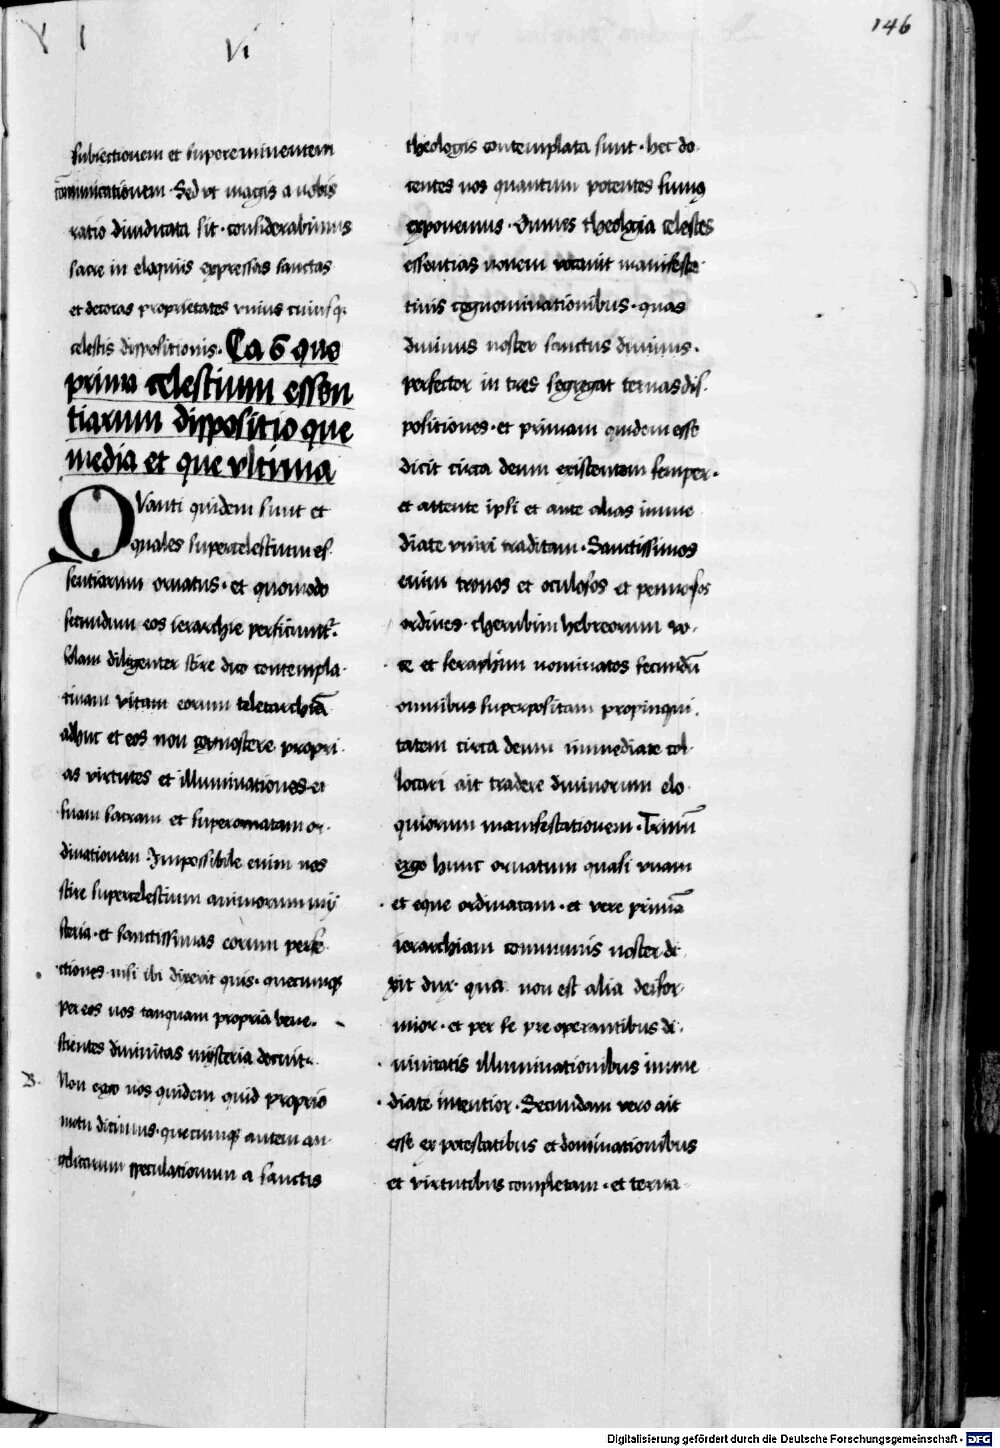 Vi
146
subiectionem et supereminentem
cōmunicationem · Sed ut magis a nobis
ratio diiudicata sit · considerabimus
sacre in eloquiis expressas sanctas
et decoras proprietates vnius cuiusq,
celestis dispositionis · Ca 6 que
prima celestium essen
tiarum dispositio que
media et que vltima
Quanti quidem sunt et
quales supercelestium es·
sentiarum ornatus · et quomodo
secundum eos ierarchie perficiunt᷑·
solam diligenter scire dico contempla·
tiuam vitam eorum teletarchiā
adhuc et eos non cognoscere propri·
as virtutes et illuminationes et
suam sacram et superornatam or·
dinationem · Impossibile enim nos
scire supercelestium animorum my
steria · et sanctissimas eorum perfe·
ctiones nisi ibi dixerit quis · quecumq3
per eos nos tanquam propria bene ·
scientes diuinitas mysteria docuit ·
B· Non ergo nos quidem quid proprio
motu dicimus · quecumq3 autem an·
gelicarum speculationum a sanctis
theologis contemplata sunt · hec do·
centes nos quantum potentes sumus
exponemus · Omnes theologia celestes
essentias nouem vocauit manifesta·
tiuis cognominationibus · quas
diuinus noster sanctus diuinus ·
perfector in tres segregat ternas dis·
positiones · et primam quidem esse
dicit circa deum existentem semper ·
et attente ipsi et ante alias imme
diate vniri traditam · Sanctissimos
enim tronos et oculosos et pennosos
ordines · cherubim hebreorum vo·
ce et seraphim nominatos secundū
omnibus superpositam propinqui·
tatem circa deum immediate col·
locari ait tradere diuinorum elo·
quiorum manifestationem · Trinū
ergo hunc ornatum quasi vnam
et eque ordinatam · et vere primā
ierarchiam communis noster di·
xit dux · qua non est alia deifor·
mior · et per se pre operantibus di·
uinitatis illuminationibus imme
diate intentior · Secundam vero ait
esse ex potestatibus et dominationibus
et virtutibus completam · et terna·
Digitalisierung gefördert durch die Deutsche Forschungsgemeinschaft - DFG